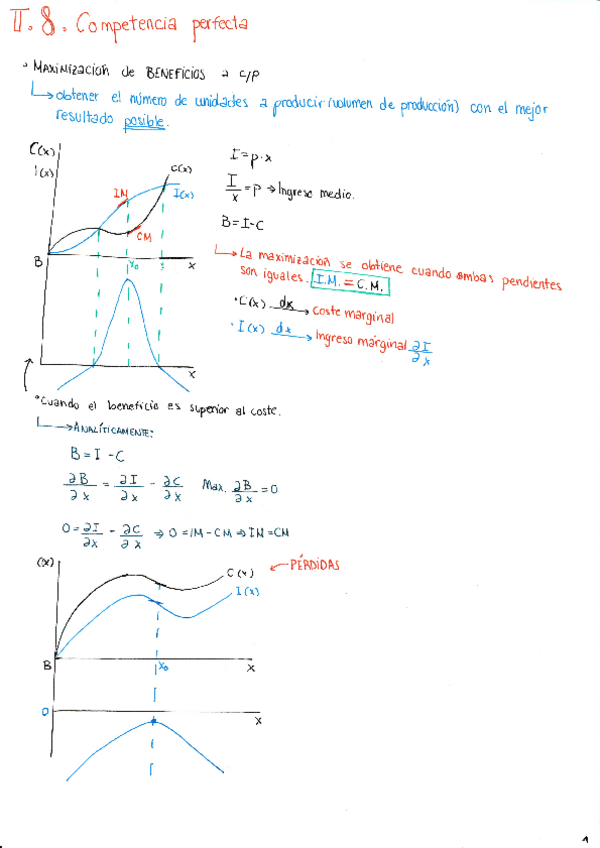 II.8. Competencia perfecta
• MAXIMIZACIÓN de BENEFICIOS a C/P
obtener el número de unidades a producir (volumen de producción) con el mejor
resultado posible.
C(x)
I(x)
C(x)
I(x)
IM
CM
B
x₀
x
x
I = p·x
I/x = p → Ingreso medio.
B = I-C
La maximización se obtiene cuando ambas pendientes
son iguales. I.M. = C.M.
• C(x) dx → Coste marginal
• I(x) dx → Ingreso marginal ∂I/∂x
• Cuando el beneficio es superior al coste.
→ ANALÍTICAMENTE:
B = I - C
∂B/∂x = ∂I/∂x - ∂C/∂x Max. ∂B/∂x = 0
0 = ∂I/∂x - ∂C/∂x ⇒ 0 = IM - CM ⇒ IM = CM
(x)
C(x)
I(x)
← PÉRDIDAS
B
x₀
x
0
x
1